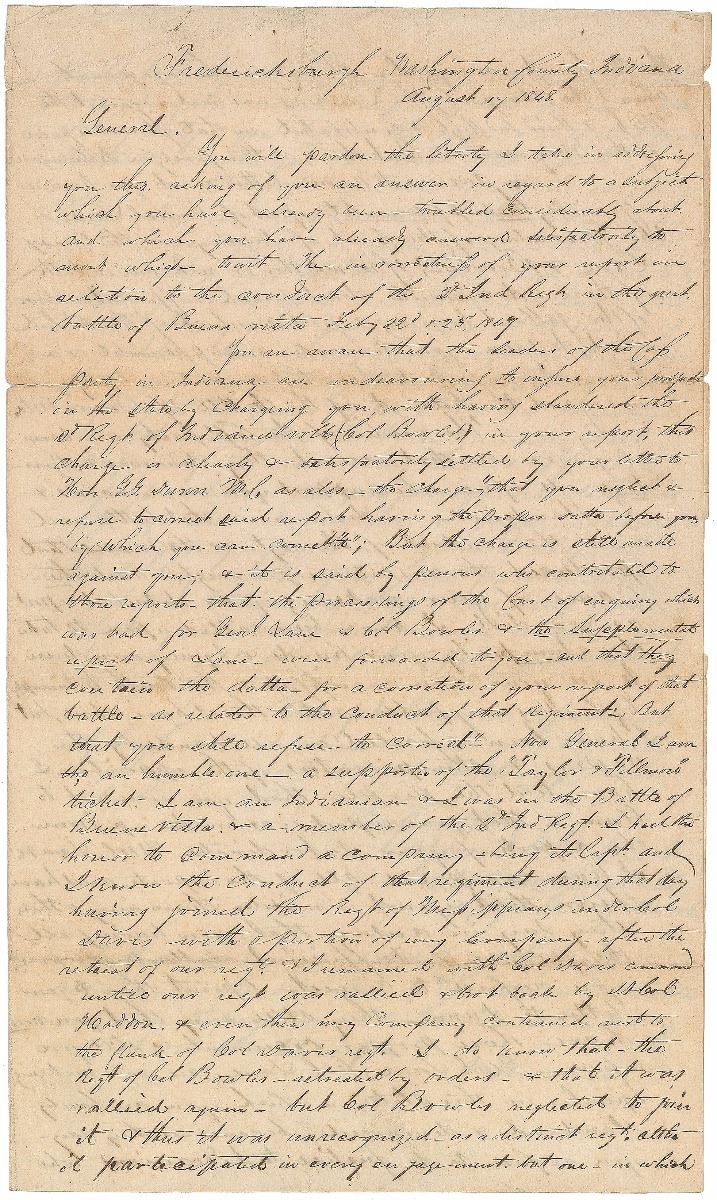 Fredericksburgh Washington County Indiana
August 17 1848.
General.
You will pardon the liberty I take in addressing
you this. asking of you an answer in regard to a subject
which you have, already been troubled considerably about
and which you have already answered satisfactorily to
most whigs
relation to the conduct of the 2d Ind Regt in the great
battle of Buena vista Feby 22d & 23d 1847
You are aware that the leaders of the Cass
Party in Indiana are endeavouring to injure your prospects
in the state by charging you, with having slandered the
2d Regt of Indiana volts (Col Bowles) in your report, this
charge is already & satisfactorily settled by your letter to
Hon G.G. Dunn M.C. as also the charge "that you neglect &
refuse to correct said report having the proper datta before you
by which you can correct it"; But the charge is still made
against you; & it is said by persons who contributed to
those reports that the proceedings of the Court of enquiry which
was had for Genl Lane & Col Bowles & the supplemental
report of Lane were forwarded to you and that they
contain the datta for a correction of your report of that
battle as relates to the conduct of that Regiment. But
that you still refuse to correct" Now General I am
an humble one a supporter of the "Taylor & Fillmore"
ticket. I am an Indianian & I was in the Battle of
Buene Vista. & a member of the 2d Ind Regt. I had the
honor to command a company being its Capt and
I know the conduct of that regiment during that day
having joined the Regt of Mississippians under Col
Davis with a portion of my company after the
retreat of our regt. & I remained with Col Davis command
until our regt was rallied & bot back by Lt Col
Haddon. & even then my Company continued next to
the flank of Col Davis regt. I do know that the
Regt of Col Bowles retreated by orders & that it was
rallied again but Col Bowles neglected to join
it & thus it was unrecognized as a distinct regt. altho
it participated in every engagement but one in which